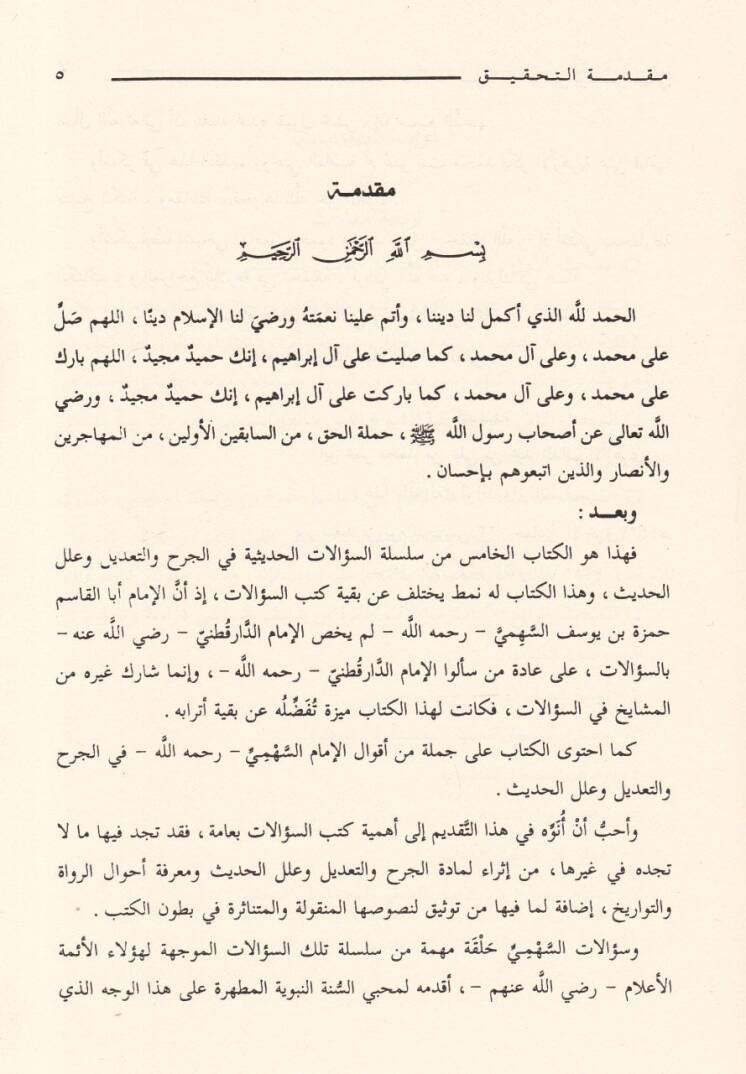 مقدمة التحقيق ٥
مقدمة
بِسْمِ اللَّهِ الرَّحْمَٰنِ الرَّحِيمِ
الحمد للَّه الذي أكمل لنا ديننا ، وأتم علينا نعمَتهُ ورضيَ لنا الإسلام دينًا ، اللهم صَلِّ
على محمد ، وعلى آل محمد ، كما صليت على آل إبراهيم ، إنك حميدٌ مجيدٌ ، اللهم بارك
على محمد ، وعلى آل محمد ، كما باركت على آل إبراهيم ، إنك حميدٌ مجيدٌ ، ورضي
اللَّه تعالى عن أصحاب رسول اللَّه ﷺ ، حملة الحق ، من السابقين الأولين ، من المهاجرين
والأنصار والذين اتبعوهم بإحسان .
وبعـد :
فهذا هو الكتاب الخامس من سلسلة السؤالات الحديثية في الجرح والتعديل وعلل
الحديث ، وهذا الكتاب له نمط يختلف عن بقية كتب السؤالات ، إذ أنَّ الإمام أبا القاسم
حمزة بن يوسف السَّهِميَّ – رحمه اللَّه – لم يخص الإمام الدَّارقُطنيّ – رضي اللَّه عنه –
بالسؤالات ، على عادة من سألوا الإمام الدَّارقُطنيّ – رحمه اللَّه – ، وإنما شارك غيره من
المشايخ في السؤالات ، فكانت لهذا الكتاب ميزة تُفَضِّلُه عن بقية أترابه .
كما احتوى الكتاب على جملة من أقوال الإمام السَّهْمِيِّ – رحمه اللَّه – في الجرح
والتعديل وعلل الحديث .
وأحبُّ أنْ أُنَوِّه في هذا التَّقديم إلى أهمية كتب السؤالات بعامة ، فقد تجد فيها ما لا
تجده في غيرها ، من إثراء لمادة الجرح والتعديل وعلل الحديث ومعرفة أحوال الرواة
والتواريخ ، إضافة لما فيها من توثيق لنصوصها المنقولة والمتناثرة في بطون الكتب .
وسؤالات السَّهْمِيِّ حَلْقَة مهمة من سلسلة تلك السؤالات الموجهة لهؤلاء الأئمة
الأعلام – رضي اللَّه عنهم – ، أقدمه لمحبي السُّنة النبوية المطهرة على هذا الوجه الذي